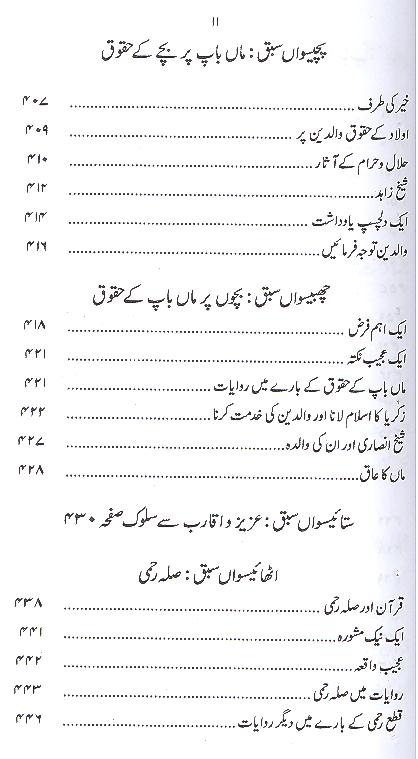 ۱۱
پچیسواں سبق : ماں باپ پر بچے کے حقوق
خیر کی طرف ........ ۴۰۷
اولاد کے حقوق والدین پر ........ ۴۰۹
حلال و حرام کے آثار ........ ۴۱۰
شیخ زاہد ........ ۴۱۲
ایک دلچسپ یادداشت ........ ۴۱۴
والدین توجہ فرمائیں ........ ۴۱۶
چھبیسواں سبق : بچوں پر ماں باپ کے حقوق
ایک اہم فرض ........ ۴۱۸
ایک عجیب نکتہ ........ ۴۲۱
ماں باپ کے حقوق کے بارے میں روایات ........ ۴۲۱
زکریا کا اسلام لانا اور والدین کی خدمت کرنا ........ ۴۲۲
شیخ انصاری اور ان کی والدہ ........ ۴۲۷
ماں کا عاق ........ ۴۲۸
ستائیسواں سبق : عزیز و اقارب سے سلوک صفحہ ۴۳۰
اٹھائیسواں سبق : صلہ رحمی
قرآن اور صلہ رحمی ........ ۴۳۸
ایک نیک مشورہ ........ ۴۴۱
عجیب واقعہ ........ ۴۴۲
روایات میں صلہ رحمی ........ ۴۴۳
قطع رحمی کے بارے میں دیگر روایات ........ ۴۴۶